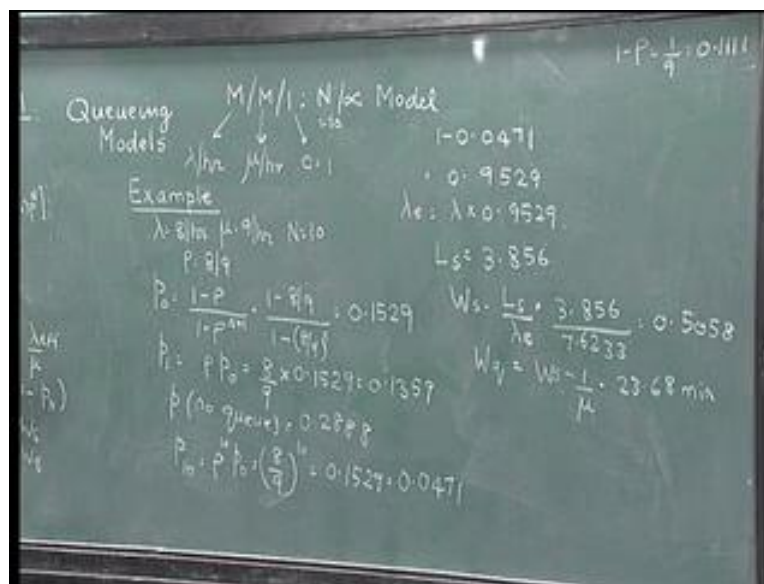 1-ρ = 1/9 = 0.1111
Queueing Models
M/M/1 : N/∝ Model
=10
λ/hr μ/hr 0.1
Example
λ = 8/hr μ = 9/hr N=10
ρ = 8/9
P₀ = (1-ρ)/(1-ρᴺ⁺¹) = (1-8/9)/(1-(8/9)) = 0.1529
p₁ = ρ p₀ = 8/9 × 0.1529 = 0.1359
p (no queue) = 0.2888
P₁₀ = ρ¹⁰ p₀ = (8/9)¹⁰ = 0.1529 = 0.0471
λeff/μ
- pₙ)
Ws
1-0.0471
= 0.9529
λe = λ × 0.9529
Ls = 3.856
Ws = Ls/λe = 3.856/7.6233 = 0.5058
Wq = Ws - 1/μ = 23.68 min